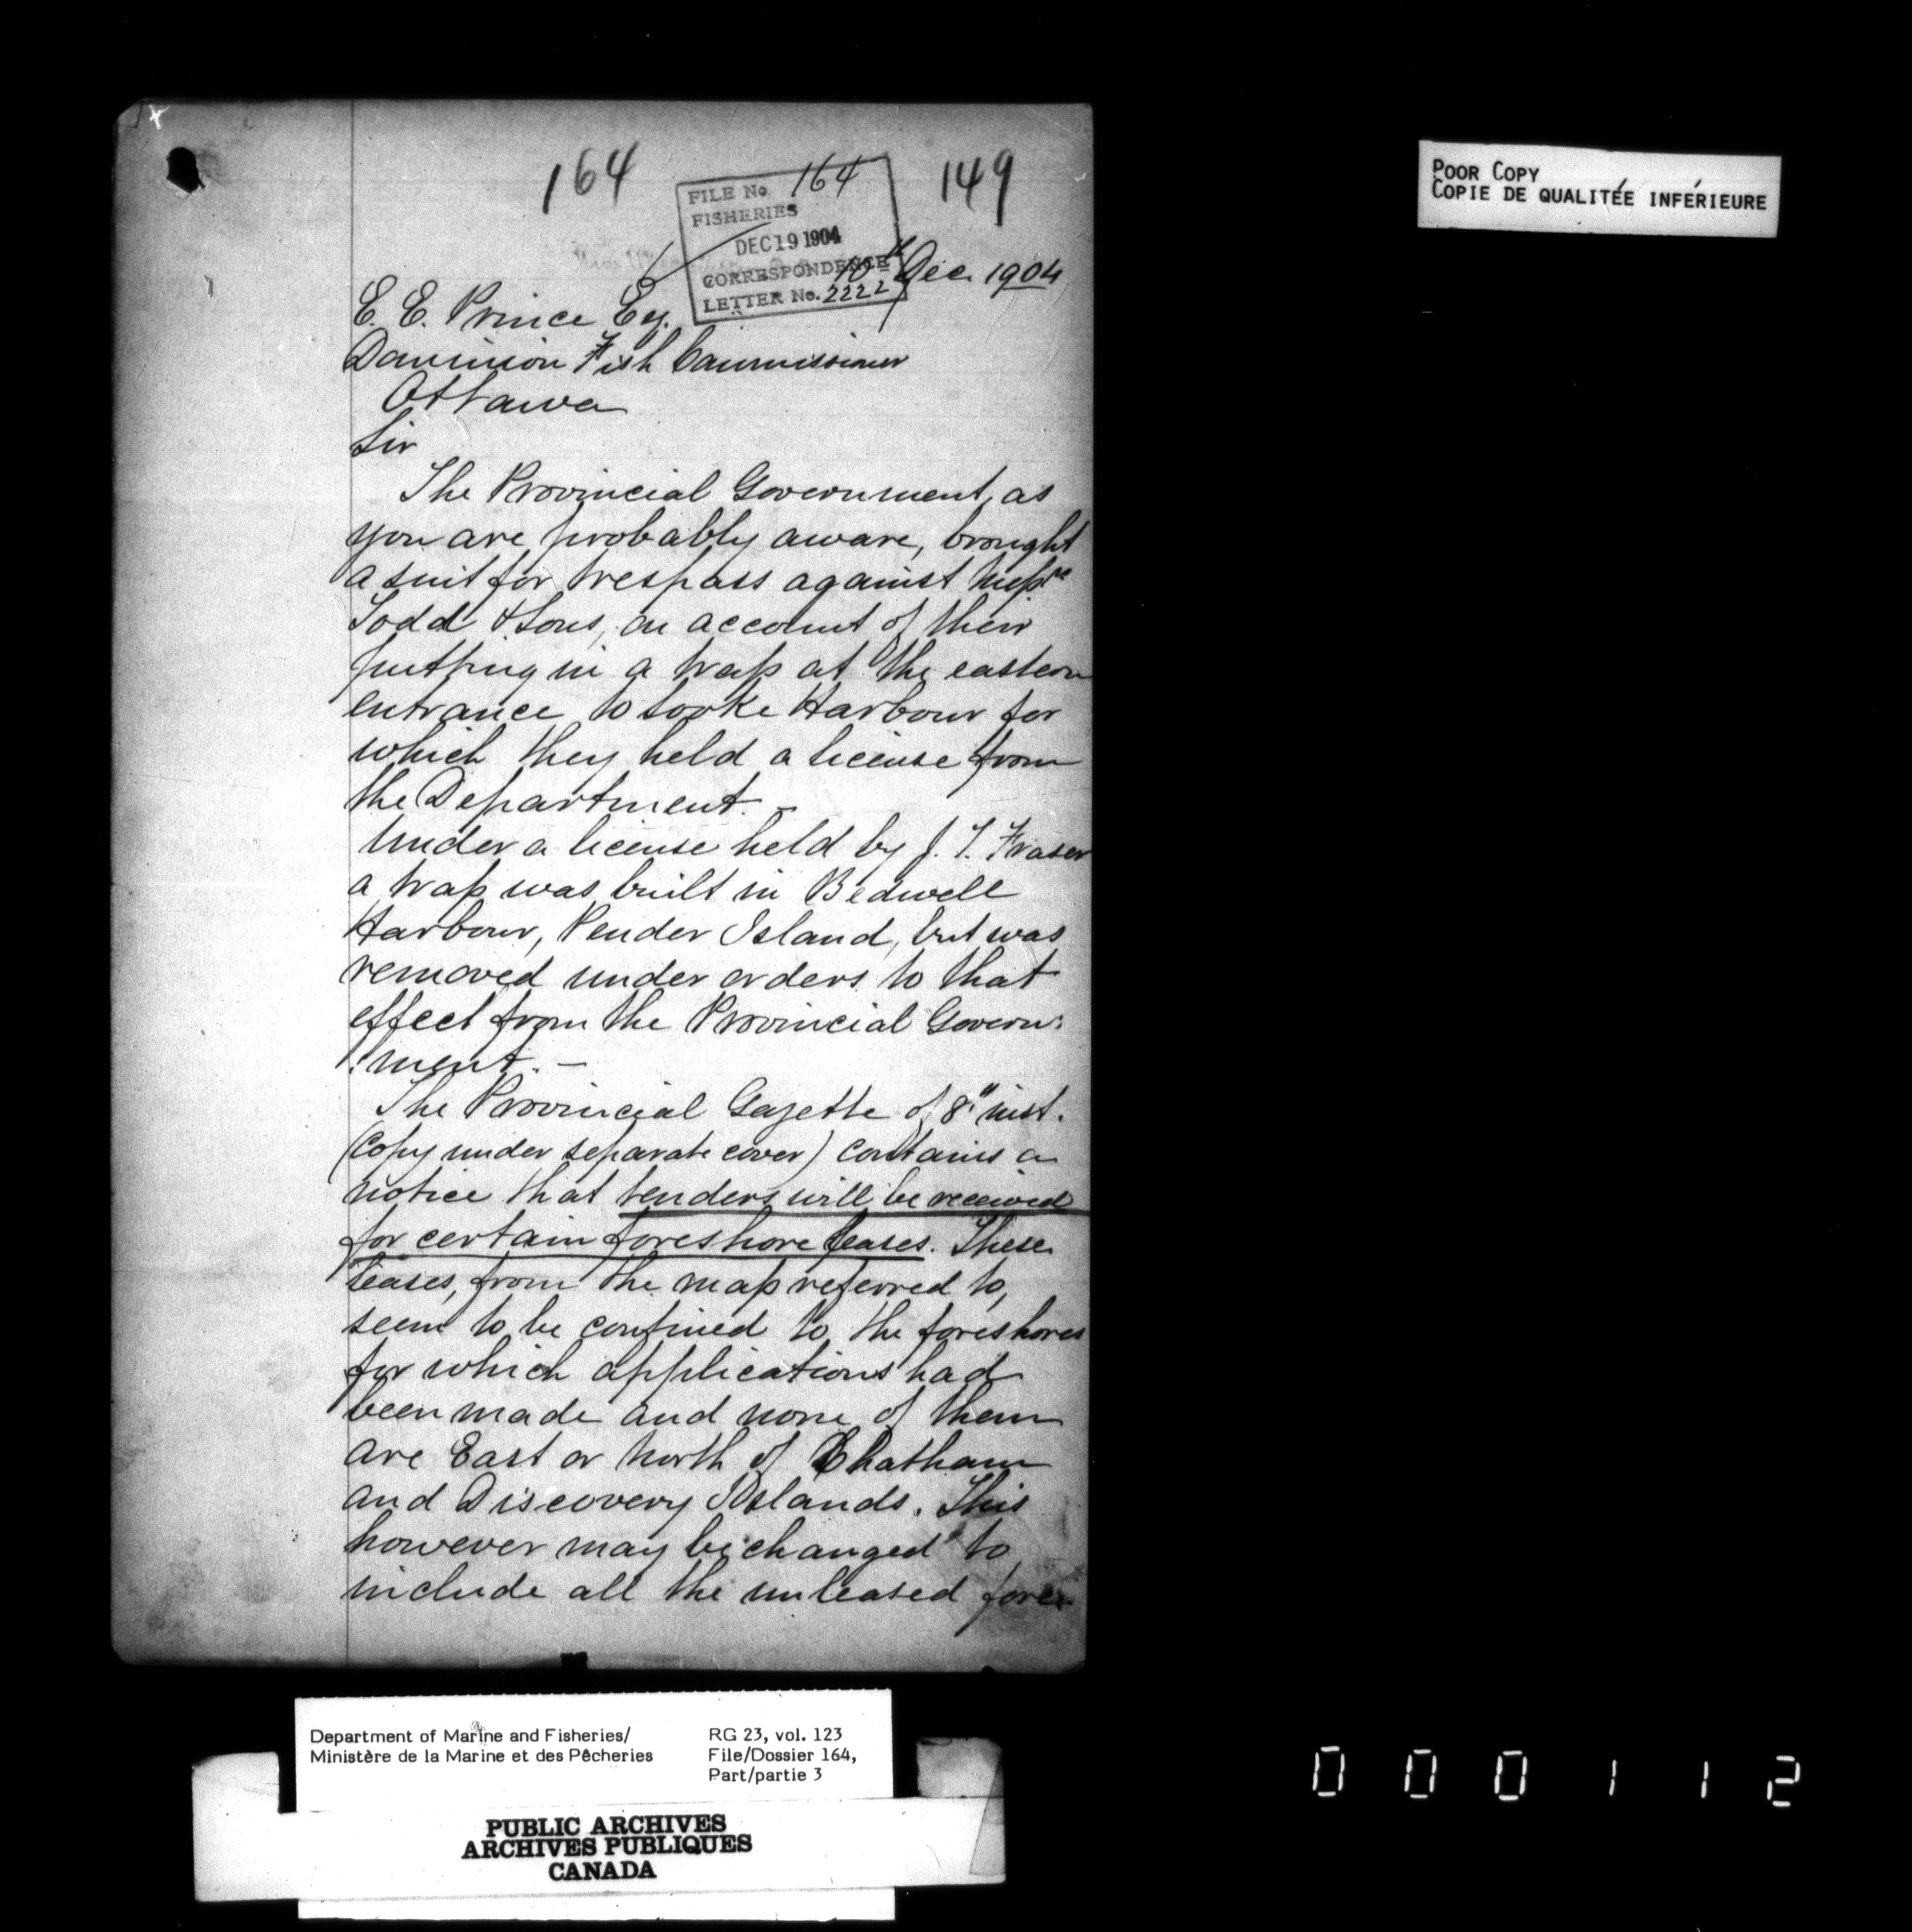 164
149
FILE No. 164
FISHERIES
DEC 19 1904
CORRESPONDENCE
LETTER No. 2222
10th Dec. 1904
E. E. Prince Esq.
Dominion Fish Commissioner
Ottawa
Sir
The Provincial Government, as
you are probably aware, brought
a suit for trespass against Messrs
Todd & Sons, on account of their
putting in a trap at the eastern
entrance to Sooke Harbour for
which they held a license from
the Department. -
Under a license held by J. T. Fraser
a trap was built in Bedwell
Harbour, Pender Island, but was
removed under orders to that
effect from the Provincial Govern:
:ment. -
The Provincial Gazette of 8" inst.
(Copy under separate cover) contains a
notice that tenders will be received
for certain foreshore leases. These
leases, from the map referred to,
seem to be confined to the foreshores
for which applications had
been made and none of them
are East or North of Chatham
and Discovery Islands. This
however may be changed to
include all the unleased fore:
POOR COPY
COPIE DE QUALITÉE INFÉRIEURE
Department of Marine and Fisheries/
Ministère de la Marine et des Pêcheries
RG 23, vol. 123
File/Dossier 164,
Part/partie 3
PUBLIC ARCHIVES
ARCHIVES PUBLIQUES
CANADA
000112